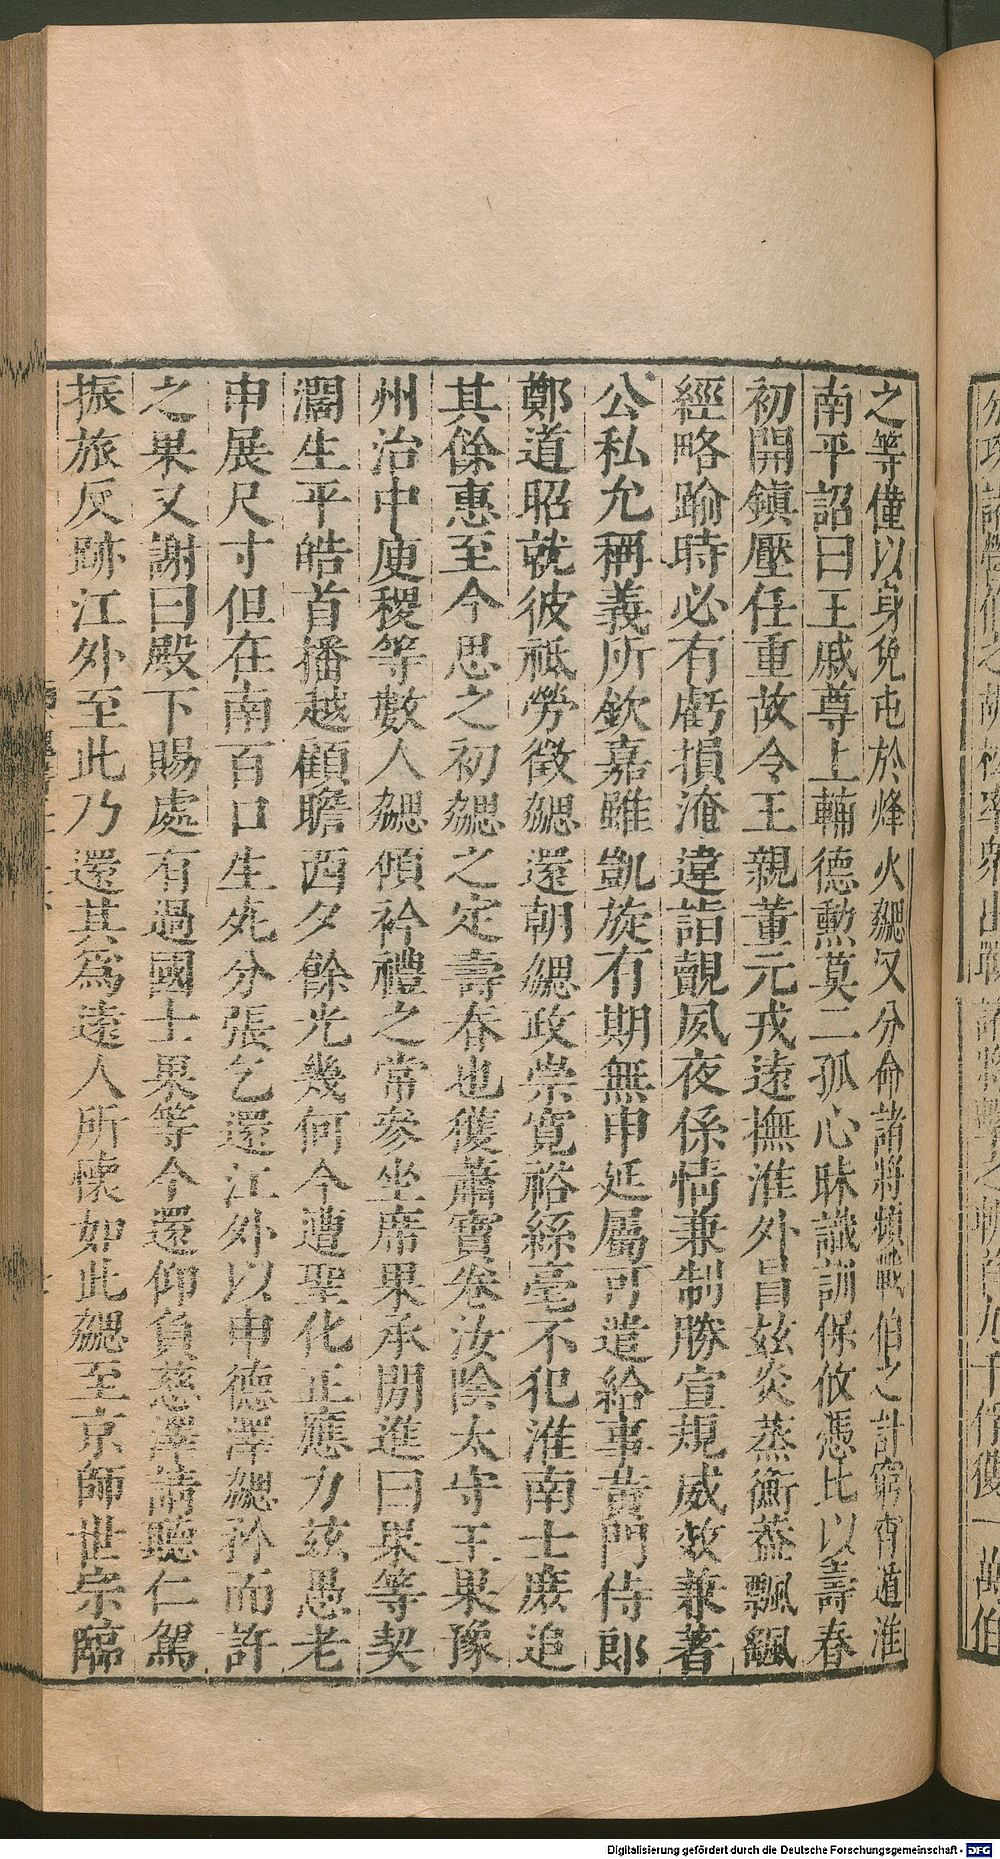 之等僅以身免屯於烽火勰又分命諸將頻戰伯之計窮宵遁淮
南平詔曰王戚尊上輔德勲莫二孤心昧識訓保攸憑比以壽春
初開鎭壓任重故令王親董元戎遠撫淮外冒玆炎蒸衡蓋飄颻
經略踰時必有虧損淹違詣覿夙夜係情兼制勝宣規威效兼著
公私允稱義所欽嘉雖凱旋有期無申延屬可遣給事黃門侍郎
鄭道昭就彼祗勞徵勰還朝勰政崇寬裕絲毫不犯淮南士庶追
其餘惠至今思之初勰之定壽春也獲蕭寶卷汝陰太守王果豫
州治中庾稷等數人勰傾衿禮之常參坐席果承間進曰果等契
濶生平皓首播越顧瞻西夕餘光幾何今遭聖化正應力茲愚老
申展尺寸但在南百口生死分張乞還江外以申德澤勰矜而許
之果又謝曰殿下賜處有過國士果等今還仰負慈澤請聽仁駕
振旅反跡江外至此乃還其爲遠人所懷如此勰至京師世宗臨
Digitalisierung gefördert durch die Deutsche Forschungsgemeinschaft - DFG